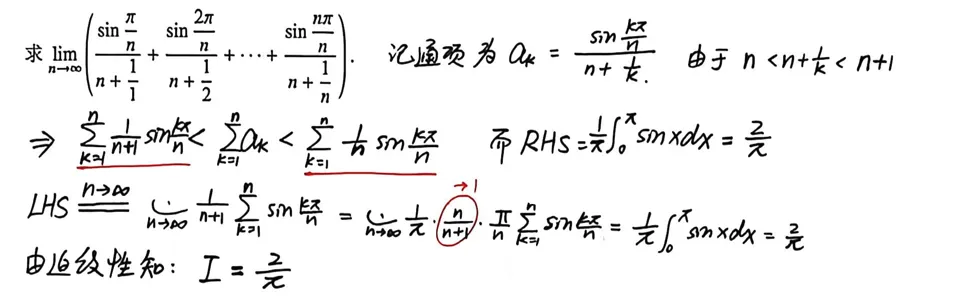 求 lim_{n→∞} ( sin(π/n)/(n+1/1) + sin(2π/n)/(n+1/2) + ⋯ + sin(nπ/n)/(n+1/n) ). 记通项为 a_k = sin(kπ/n)/(n+1/k). 由于 n < n+1/k < n+1
⇒ ∑_{k=1}^{n} 1/(n+1) sin(kπ/n) < ∑_{k=1}^{n} a_k < ∑_{k=1}^{n} 1/n sin(kπ/n) 而 RHS = 1/π ∫_0^π sin x dx = 2/π
→1
LHS ==(n→∞)== lim_{n→∞} 1/(n+1) ∑_{k=1}^{n} sin(kπ/n) = lim_{n→∞} 1/π · n/(n+1) · π/n ∑_{k=1}^{n} sin(kπ/n) = 1/π ∫_0^π sin x dx = 2/π
由迫敛性知: I = 2/π